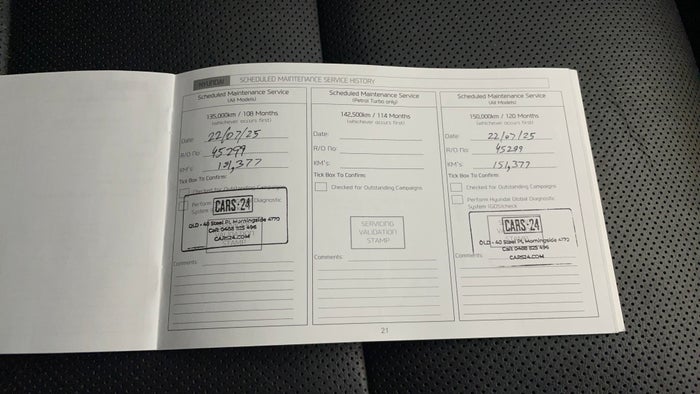 HYUNDAI SCHEDULED MAINTENANCE SERVICE HISTORY
Scheduled Maintenance Service
(All Models)
135,000km / 108 Months
(whichever occurs first)
Date: 22/07/25
R/O No: 45299
KM's: 151,377
Tick Box To Confirm:
Checked for Outstanding Campaigns
Perform Diagnostic
System
CARS24
QLD - 40 Steel Pl, Morningside 4170
Call: 0468 825 496
CARS24.COM
STAMP
Comments:
Scheduled Maintenance Service
(Petrol Turbo only)
142,500km / 114 Months
(whichever occurs first)
Date:
R/O No:
KM's:
Tick Box To Confirm:
Checked for Outstanding Campaigns
SERVICING
VALIDATION
STAMP
Comments:
Scheduled Maintenance Service
(All Models)
150,000km / 120 Months
(whichever occurs first)
Date: 22/07/25
R/O No: 45299
KM's: 151,377
Tick Box To Confirm:
Checked for Outstanding Campaigns
Perform Hyundai Global Diagnostic
System (GDS)check
CARS24
QLD - 40 Steel Pl, Morningside 4170
CARS24.COM
Comments:
21